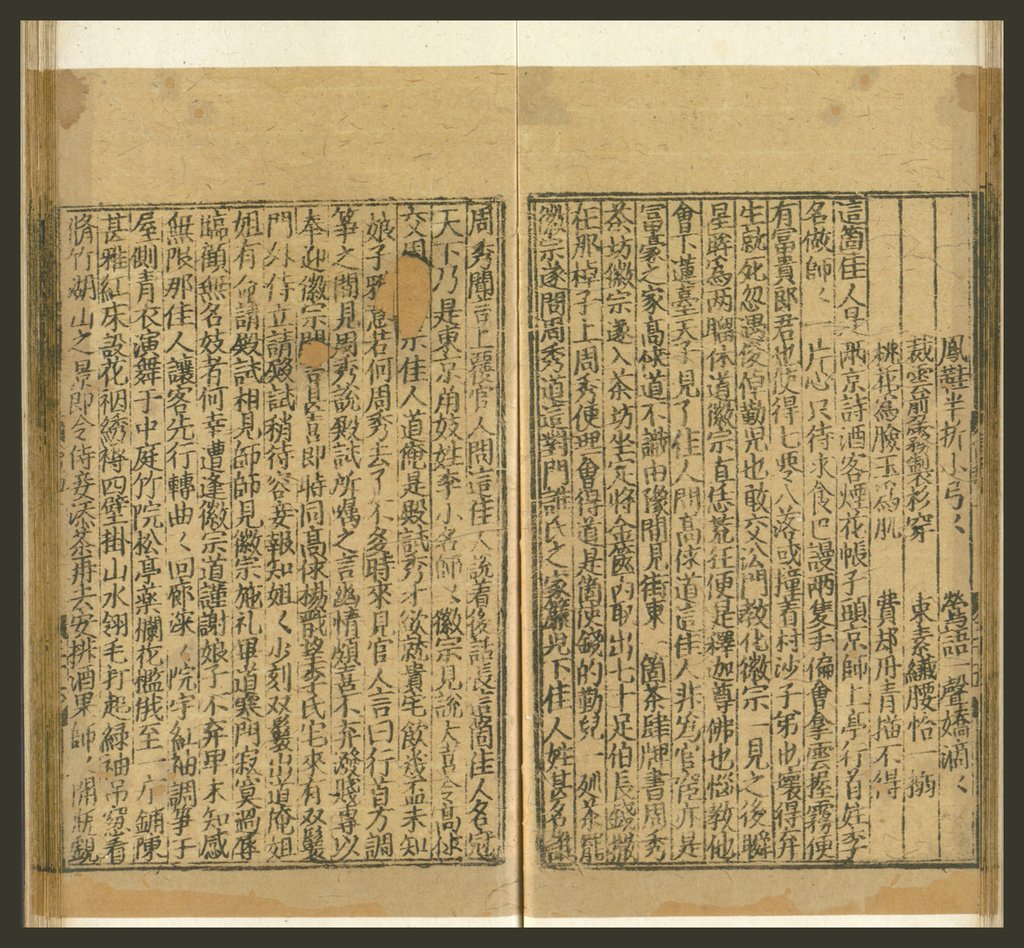 鳳鞋半折小弓弓　鶯語一聲嬌滴滴
裁雲剪霧製衫穿　束素纖腰恰一搦
桃花為臉玉為肌　費却丹青描不得
這箇佳人是兩京詩酒客煙花帳子頭京師上亭行首姓李
名做師々一片心只待求食巴謾兩隻手偏會拿雲握霧便
有富貴郎君也使得七零八落或撞着村沙子弟也壞得弃
生就死忽遇俊倬勤兒也敢交沿門教化徽宗一見之後瞬
星眸為兩瞄休道徽宗直恁荒狂便是釋迦尊佛也惱教他
會下蓮臺天子見了佳人問高俅道這佳人非為官宦亦是
富豪之家高俅道不識由豫間見街東一箇茶肆牌書周秀
茶坊徽宗遂入茶坊坐定將金篋內取出七十足伯長錢撒
在那棹子上周秀便理會得道是箇使錢的勤兒一巡茶罷
徽宗遂問周秀道這對門誰氏之家簾兒下佳人姓甚名誰
周秀聞言上覆官人問這佳人說着後話長這箇佳人名冠
天下乃是東京角妓姓李小名師々徽宗見說大喜令高俅
交周宗佳人道俺是殿試秀才欲就貴宅飲幾盃未知
娘子雅意若何周秀去了不多時來見官人言曰行首方調
箏之間見周秀說殿試所囑之言幽情頗喜不弃潑賤專以
奉迎徽宗言甚喜即時同高俅楊戩望李氏宅來有双鬟
門外侍立請殿試稍待容妾報知姐々少刻双鬟出道俺姐
姐有命請殿試相見師師見徽宗施礼畢道寒門寂寞過辱
臨顧無名妓者何幸遭逢徽宗道謹謝娘子不弃卑末知感
無限那佳人讓客先行轉曲々回廊深々院宇紅袖調箏于
屋側青衣演舞于中庭竹院松亭藥欄花檻俄至一庁鋪陳
甚雅紅床設花裀綉褥四壁掛山水翎毛打起綠袖吊窓看
脩竹湖山之景即令侍妾添茶再去安排酒果師々開瓶覷